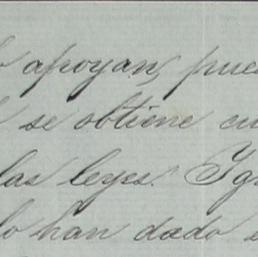 apoyan, pues
se obtiene cu
las leyes. Ig
lo han dado